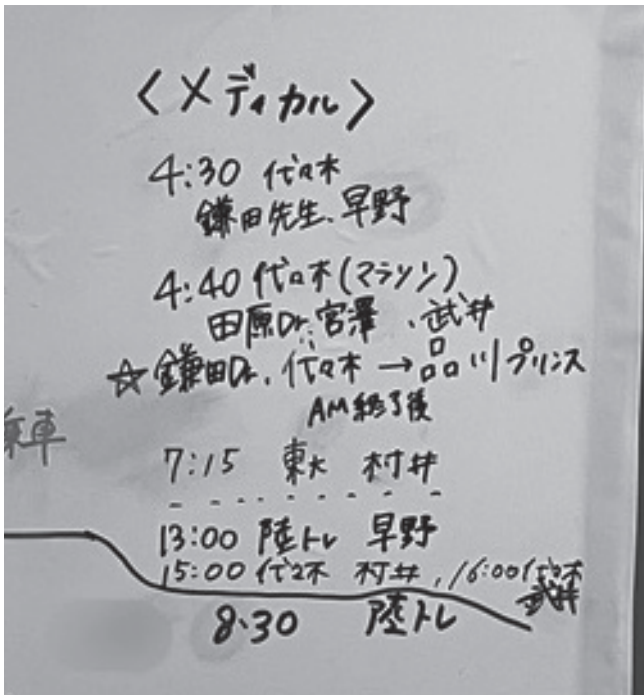 〈メディカル〉
4:30 代々木
鎌田先生、早野
4:40 代々木(マラソン)
田原Dr. 宮澤、武井
☆鎌田Dr. 代々木→品川プリンス
AM終了後
乗車
7:15 東大 村井
- - - - - - - -
13:00 陸トレ 早野
15:00 代々木 村井, 16:00代々木
武井
8:30 陸トレ